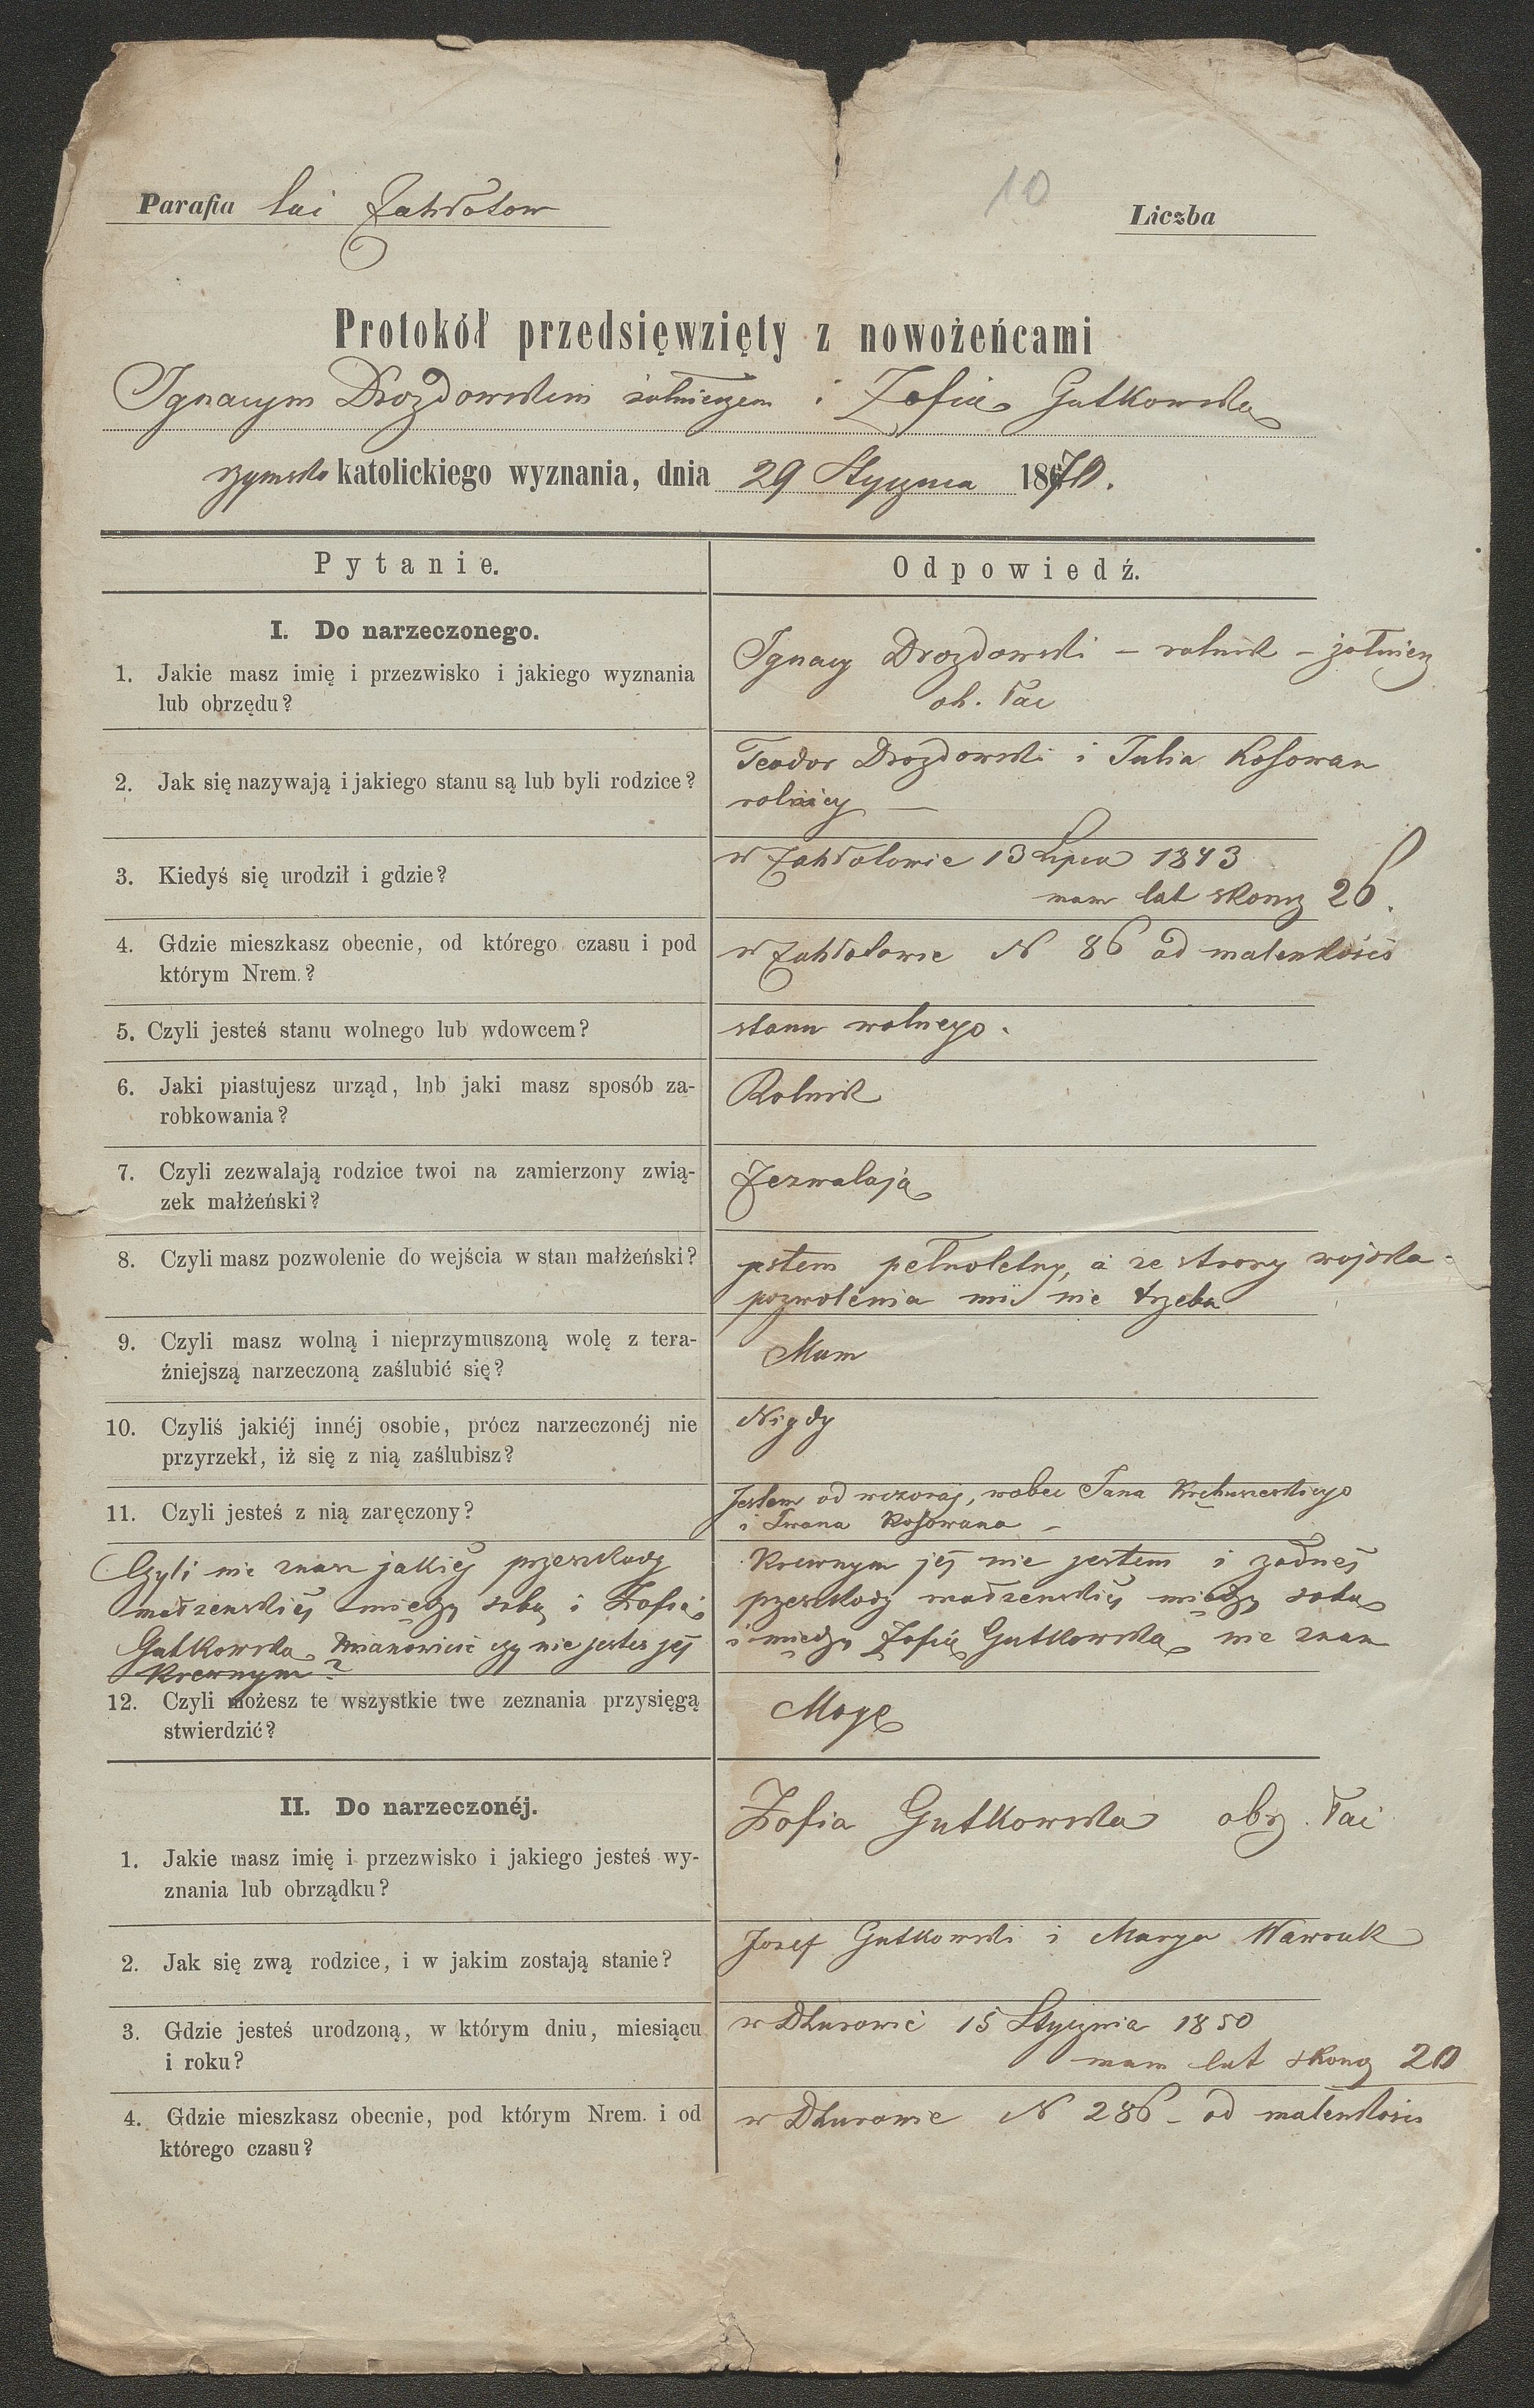 Parafia łać Zabłotow
10
Liczba
Protokół przedsięwzięty z nowożeńcami
Ignacym Drozdowskim żołnierzem i Zofią Gutkowską
rzymsko katolickiego wyznania, dnia 29 Stycznia 1870.
Pytanie.
Odpowiedź.
I. Do narzeczonego.
1. Jakie masz imię i przezwisko i jakiego wyznania
lub obrzędu?
Ignacy Drozdowski – rolnik – żołnierz
ob. łac
2. Jak się nazywają i jakiego stanu są lub byli rodzice?
Teodor Drozdowski i Julia Kosowan
rolnicy —
3. Kiedyś się urodził i gdzie?
w Zabłotowie 13 Lipca 1843
mam lat skończ 26.
4. Gdzie mieszkasz obecnie, od którego czasu i pod
którym Nrem.?
w Zabłotowie N 86 od maleńkości
5. Czyli jesteś stanu wolnego lub wdowcem?
stanu wolnego.
6. Jaki piastujesz urząd, lnb jaki masz sposób za-
robkowania?
Rolnik
7. Czyli zezwalają rodzice twoi na zamierzony zwią-
zek małżeński?
Zezwalają
8. Czyli masz pozwolenie do wejścia w stan małżeński?
jestem pełnoletny, a ze strony wojska
pozwolenia mi nie trzeba
9. Czyli masz wolną i nieprzymuszoną wolę z tera-
źniejszą narzeczoną zaślubić się?
Mam
10. Czyliś jakiéj innéj osobie, prócz narzeczonéj nie
przyrzekł, iż się z nią zaślubisz?
Nigdy
11. Czyli jesteś z nią zaręczony?
Jestem od wczoraj, wobec Jana
i Iwana Kosowana –
Czyli nie znasz jakiej przeszkody
małżenskiej między sobą i Zofią
Gutkowską, mianowicie czy nie jestes jej
krewnym?
Krewnym jej nie jestem i żadnej
przeszkody małżenskiej między sobą
i między Zofią Gutkowską nie znam
12. Czyli możesz te wszystkie twe zeznania przysięgą
stwierdzić?
Mogę
II. Do narzeczonéj.
1. Jakie masz imię i przezwisko i jakiego jesteś wy-
znania lub obrządku?
Zofia Gutkowska obrz. łac
2. Jak się zwą rodzice, i w jakim zostają stanie?
Josef Gutkowski i Marya Wawruk
3. Gdzie jesteś urodzoną, w którym dniu, miesiącu
i roku?
w Dżurowie 15 Stycznia 1850
mam lat skończ 20
4. Gdzie mieszkasz obecnie, pod którym Nrem. i od
którego czasu?
w Dżurowie N 286 – od maleńkości